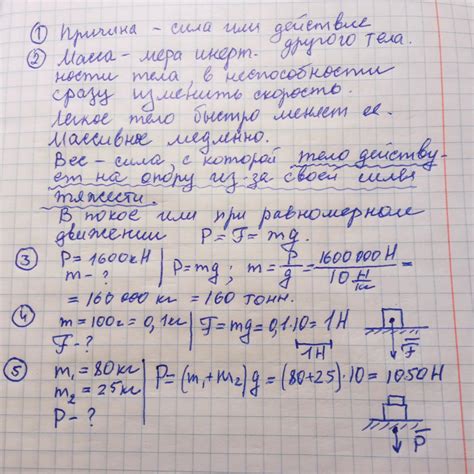 ① Причина - сила или действие
другого тела.
② Масса - мера инерт-
ности тела, в неспособности
сразу изменить скорость.
Легкое тело быстро меняет ее.
Массивное медленно.
Вес - сила, с которой тело действу-
ет на опору из-за своей силы
тяжести.
В покое или при равномерном
движении P = F = mg.
③ P = 1600 кН | P = mg ; m = P/g = 1600 000 Н / 10 Н/кг =
m - ?
= 160 000 кг = 160 тонн.
④ m = 100 г = 0,1 кг | F = mg = 0,1·10 = 1 Н
F - ? 1Н F
⑤ m₁ = 80 кг | P = (m₁ + m₂) g = (80 + 25)·10 = 1050 Н
m₂ = 25 кг
P - ? P